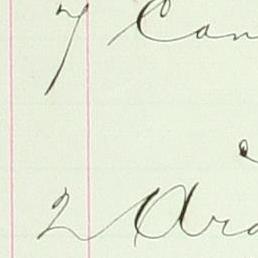 7 Can
2 Ara